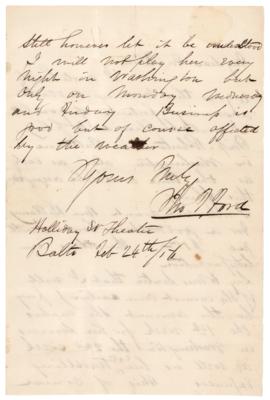 Still however let it be understood
I will not play her every
night in Washington but
only on Monday Wednesday
and Friday Business is
good but of course affected
by the weather
Yours Truly
Jno T Ford
Holliday St Theater
Balto Feb 24th/